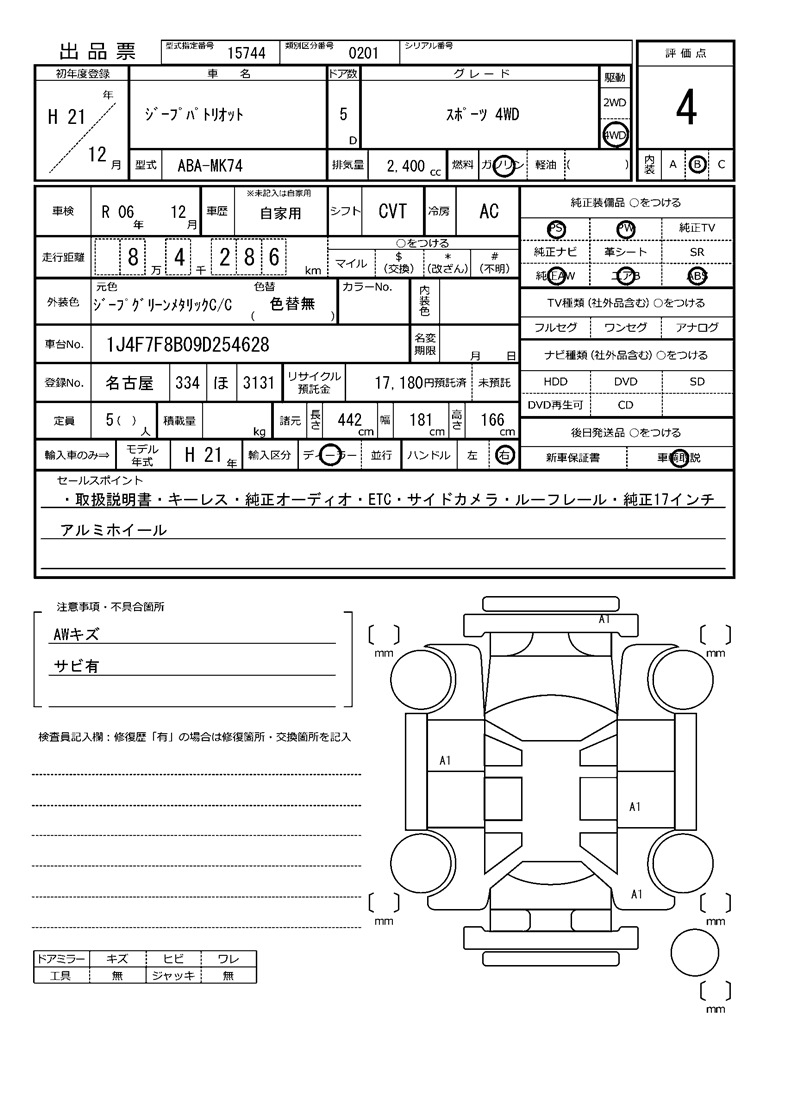 出品票 型式指定番号 15744 類別区分番号 0201 シリアル番号
評価点
4
内装 A B C
初年度登録 車名 ドア数 グレード 駆動
H 21 年 12 月 ジープパトリオット 5 D スポーツ 4WD 2WD 4WD
型式 ABA-MK74 排気量 2,400 cc 燃料 ガソリン 軽油 ( )
車検 R 06 年 12 月 車歴 ※未記入は自家用 自家用 シフト CVT 冷房 AC
走行距離 8 万 4 千 2 8 6 km
○をつける
マイル $ (交換) * (改ざん) # (不明)
外装色 元色 ジープグリーンメタリックC/C 色替 ( 色替無 ) カラーNo. 内装色
車台No. 1J4F7F8B09D254628 名変期限 月 日
登録No. 名古屋 334 ほ 3131 リサイクル預託金 17,180円預託済 未預託
定員 5( )人 積載量 kg 諸元 長さ 442 cm 幅 181 cm 高さ 166 cm
輸入車のみ⇒ モデル年式 H 21 年 輸入区分 ディーラー 並行 ハンドル 左 右
純正装備品 ○をつける
PS PW 純正TV
純正ナビ 革シート SR
純正AW エアB ABS
TV種類(社外品含む)○をつける
フルセグ ワンセグ アナログ
ナビ種類(社外品含む)○をつける
HDD DVD SD
DVD再生可 CD
後日発送品 ○をつける
新車保証書 車輌取説
セールスポイント
・取扱説明書・キーレス・純正オーディオ・ETC・サイドカメラ・ルーフレール・純正17インチ
アルミホイール
注意事項・不具合箇所
AWキズ
サビ有
検査員記入欄：修復歴「有」の場合は修復箇所・交換箇所を記入
ドアミラー キズ ヒビ ワレ
工具 無 ジャッキ 無
A1
mm mm
A1
A1
A1
mm mm
mm